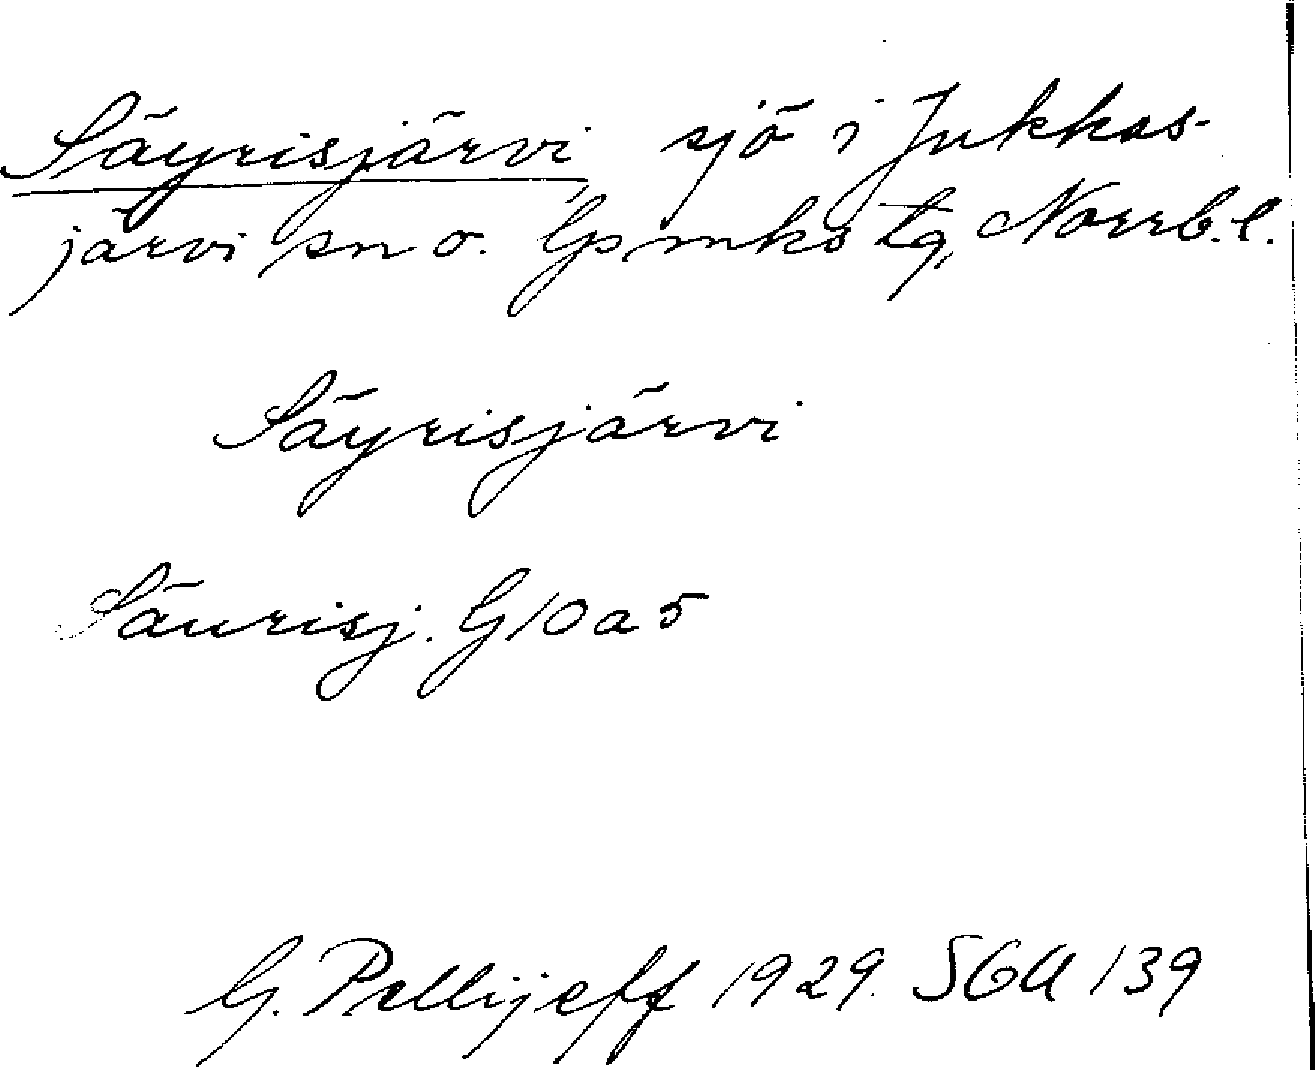 Säyrisjärvi sjö i Jukkas-
järvi sn o. lpmks tg, Norrb. l.
Säyrisjärvi
Säurisj. G10a5
G. Pellijeff 1929. SGU 139